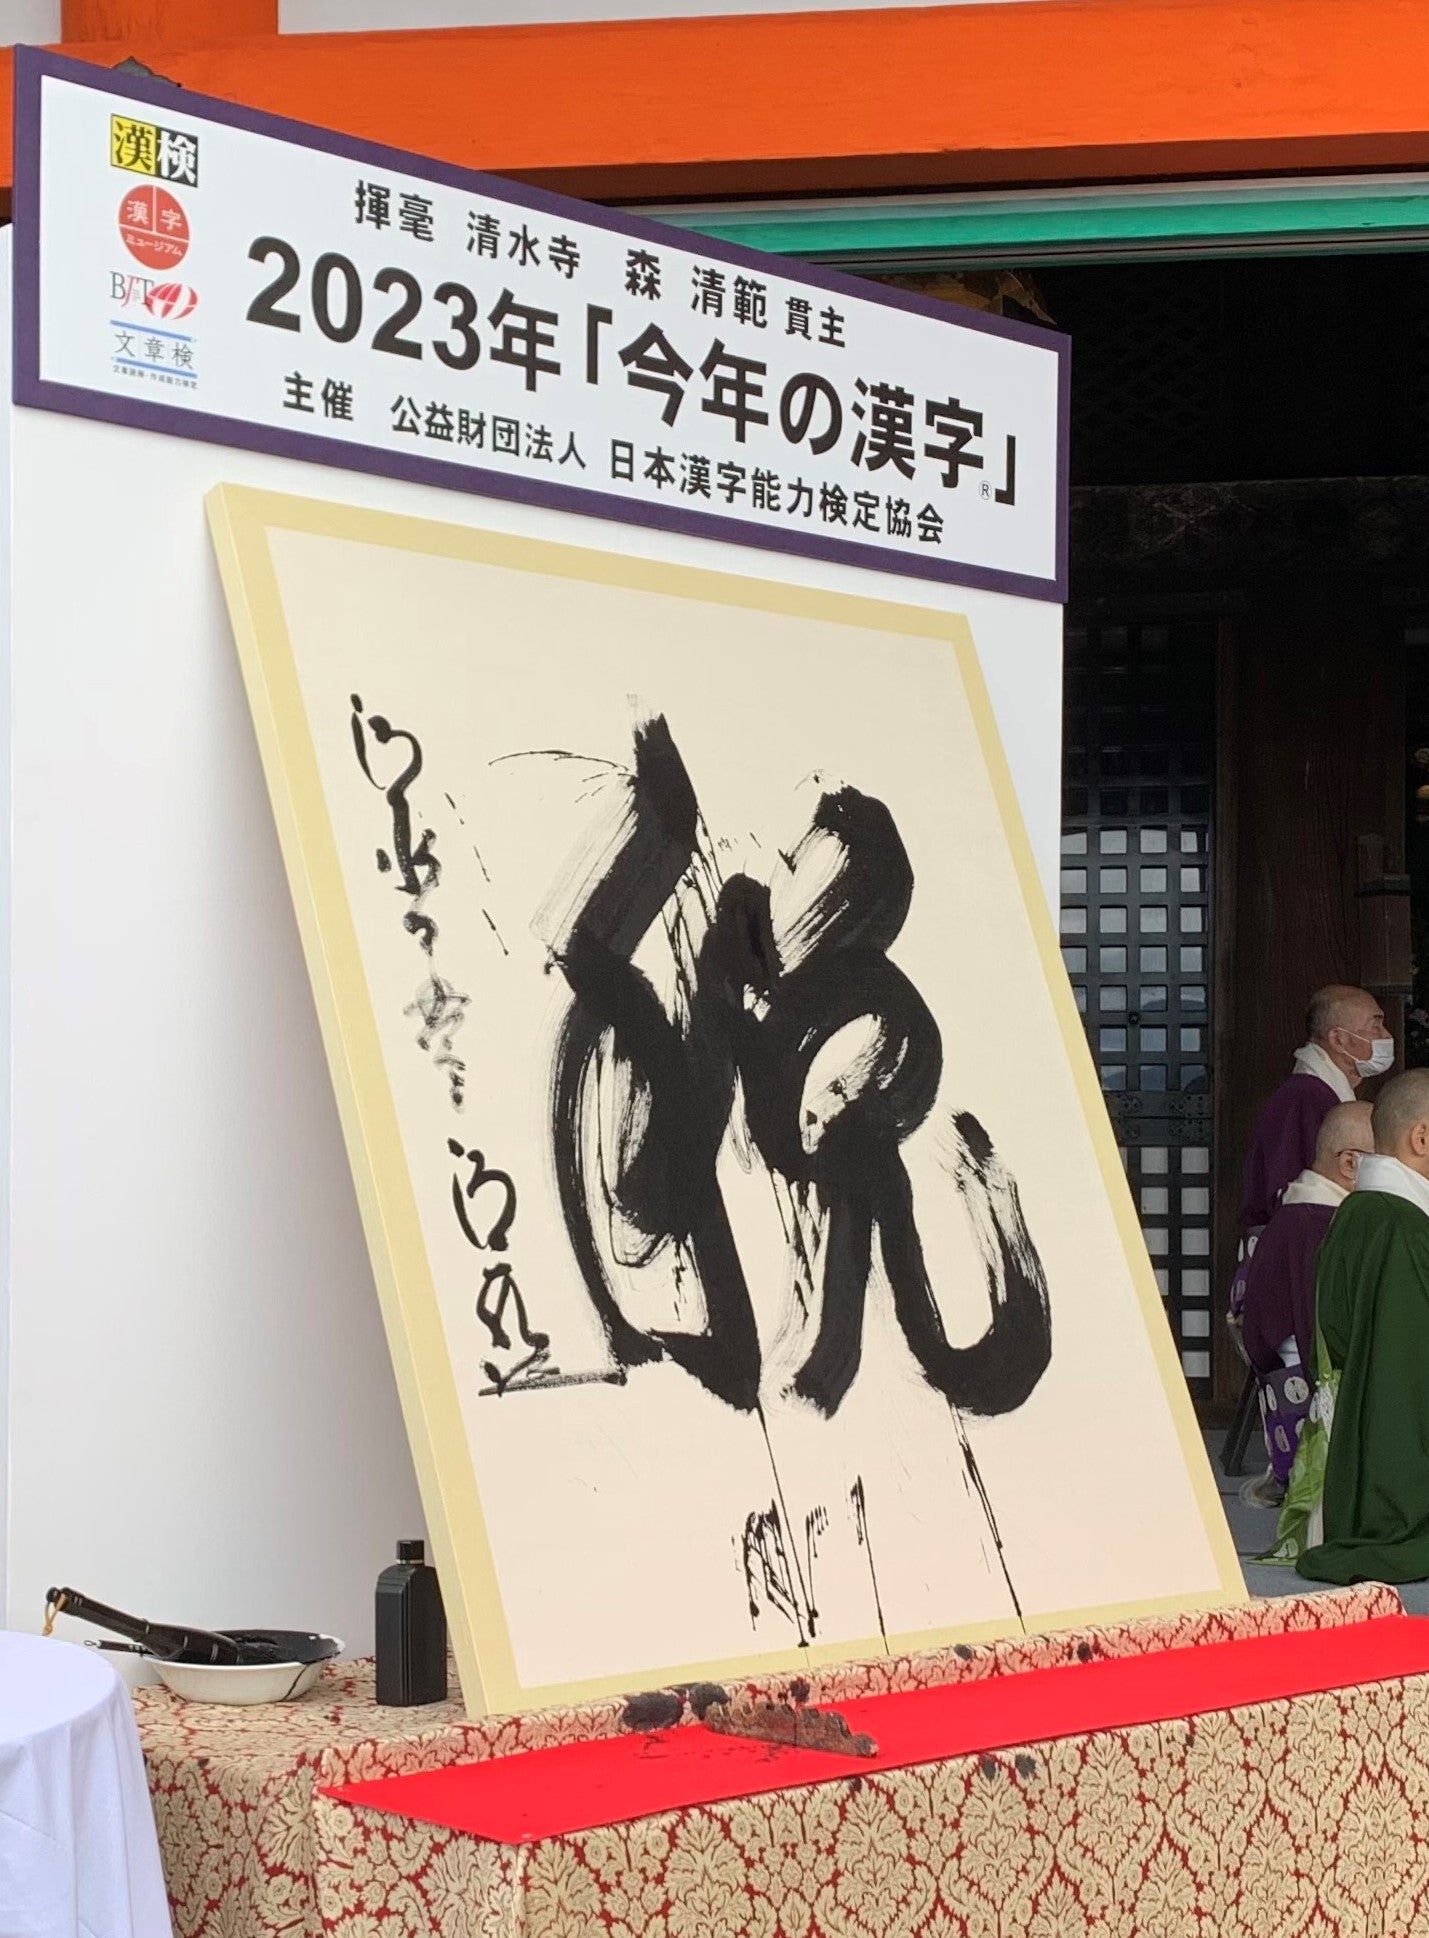 漢検
漢字
ミュージアム
BJT
文章検
文章読解・作成能力検定
揮毫 清水寺 森 清範 貫主
2023年「今年の漢字」®
主催 公益財団法人 日本漢字能力検定協会
税
清水寺
清範